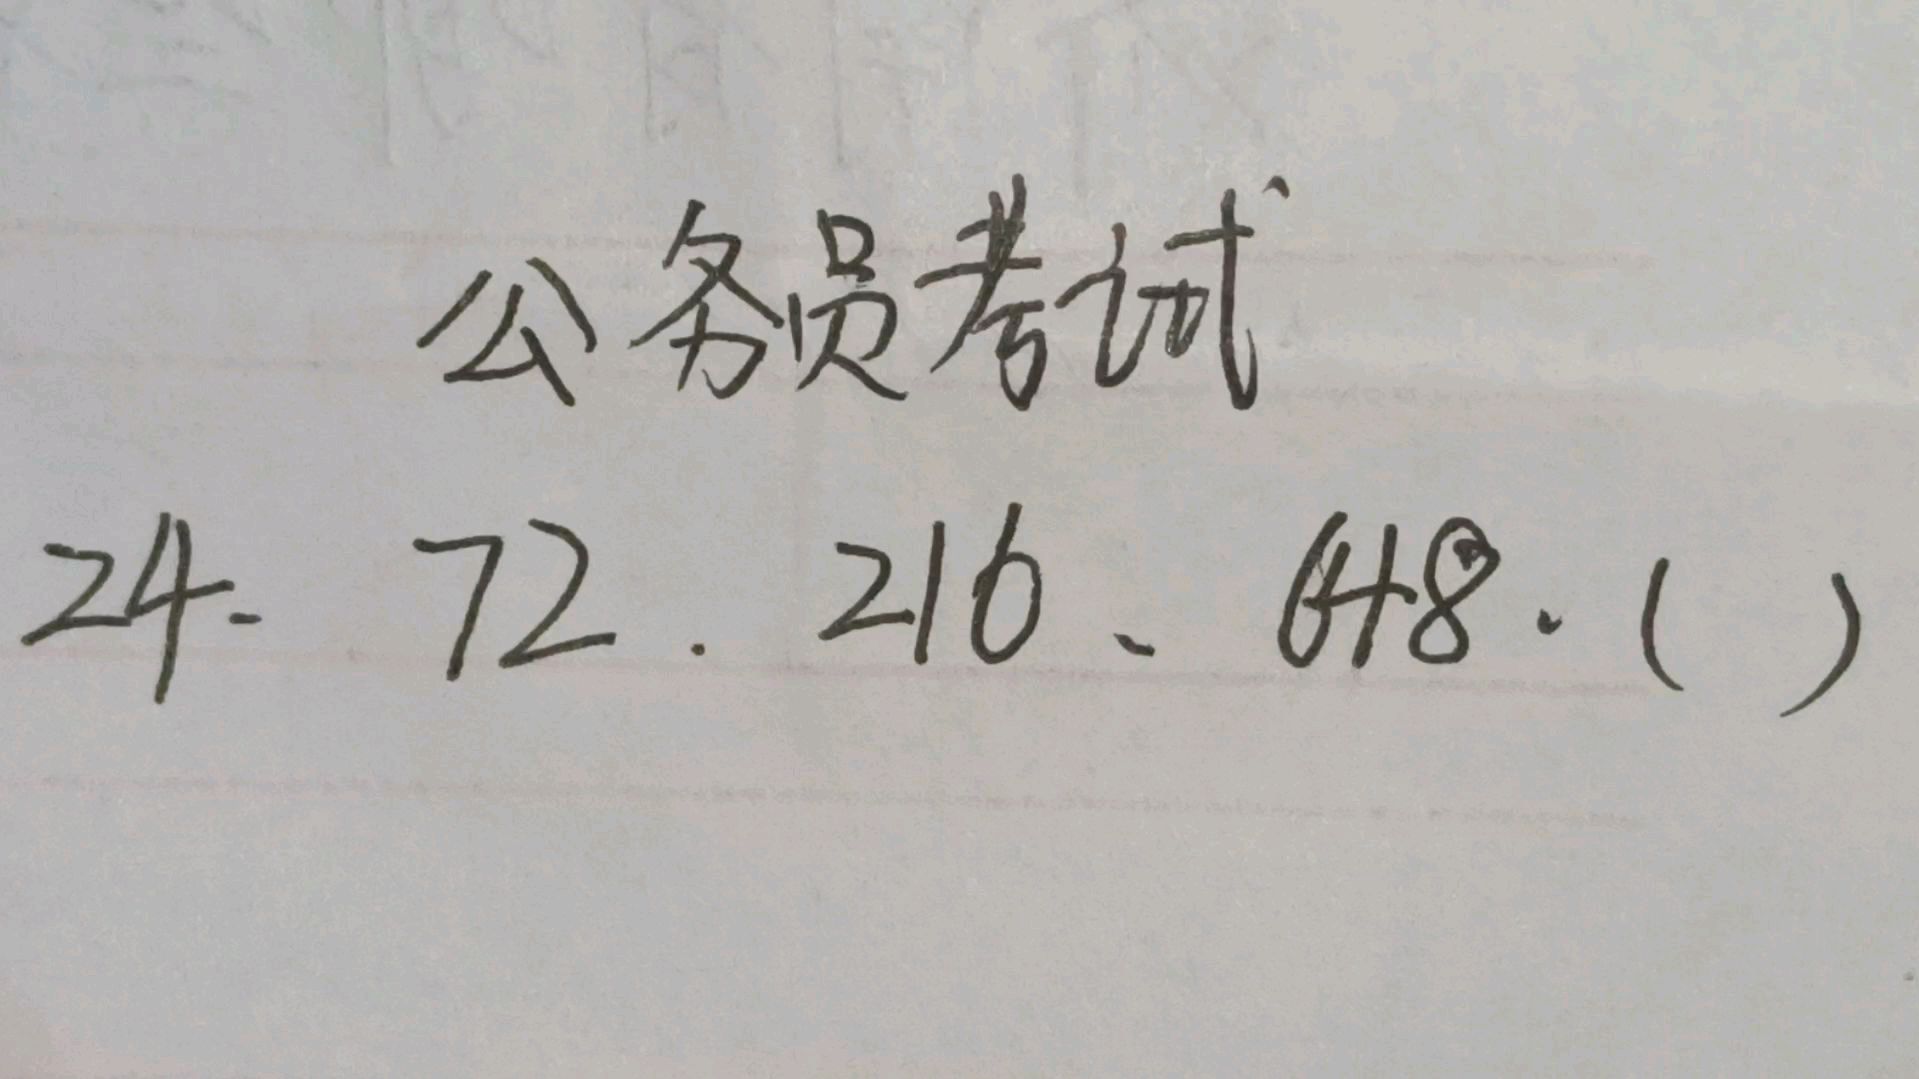 公务员考试
24、 72、 216、 648、( )